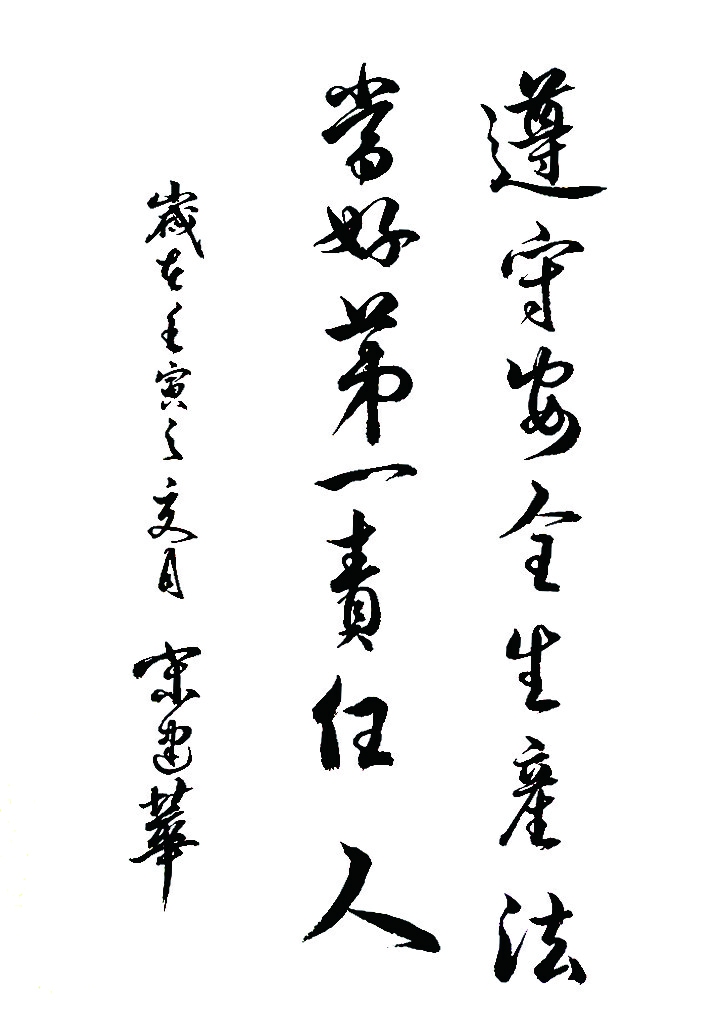 遵守安全生產法
當好第一責任人
歲在壬寅之文月 宋建華